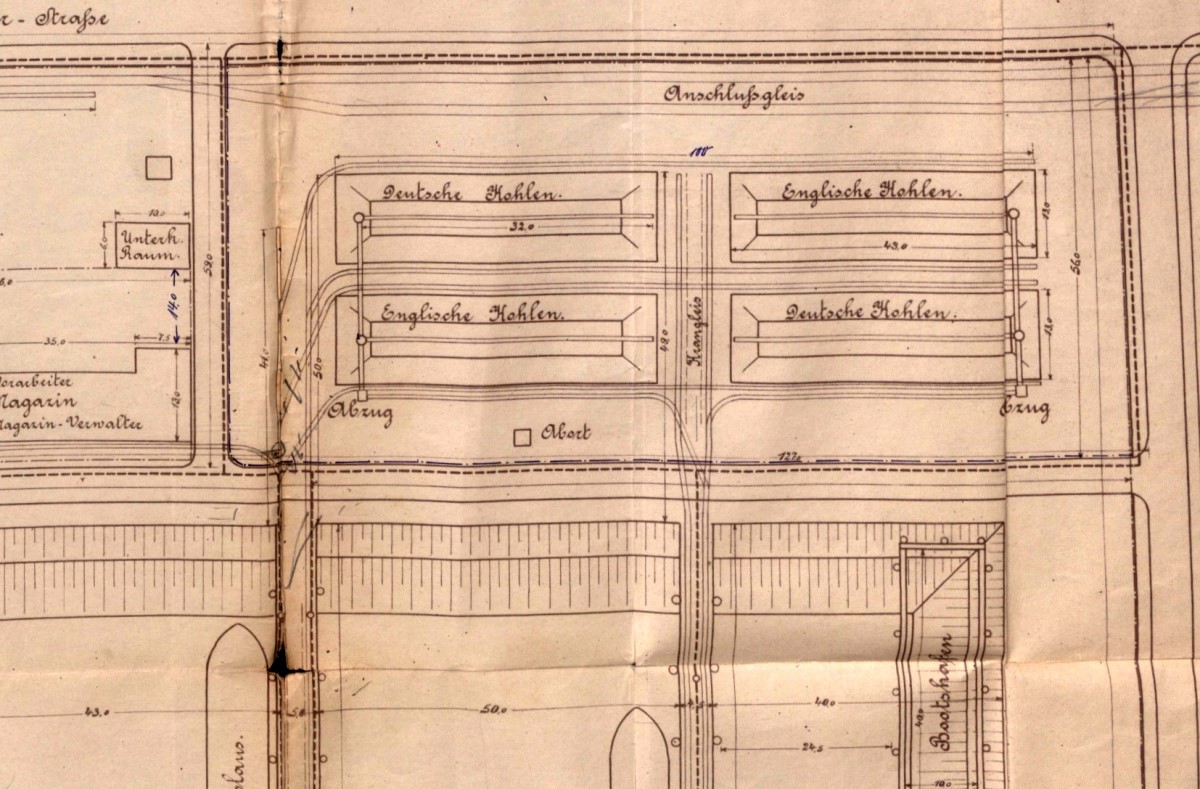 r-Straße
Anschlußgleis
100
Deutsche Kohlen.
Englische Kohlen.
10,0
32,0
13,0
Unterk.
Raum.
6,0
43,0
59,0
56,0
14,0
Englische Kohlen.
Deutsche Kohlen.
Krangleis
48,0
13,0
35,0
7,5
41,0
50,0
Vorarbeiter
Magazin
Magazin-Verwalter
Abzug
bzug
Abort
127,0
43,0
5,0
50,0
4,5
40,0
24,5
40,0
Bootshafen
10,0